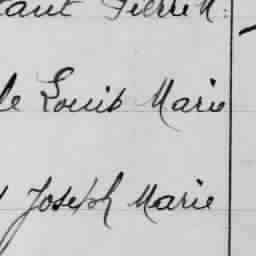 Pierre M.
le Louis Marie
Joseph Marie